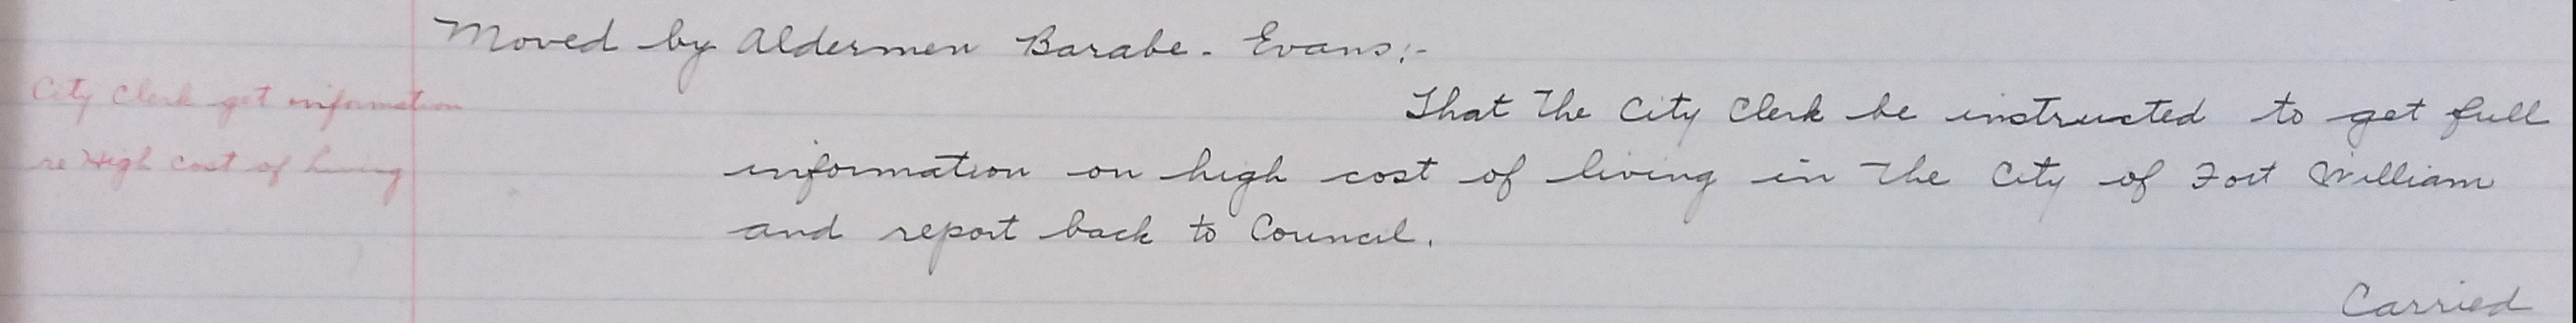 Moved by Aldermen Barabe - Evans:-
City Clerk get information
That The City Clerk be instructed to get full
re High Cost of living
information on high cost of living in The City of Fort William
and report back to Council.
Carried